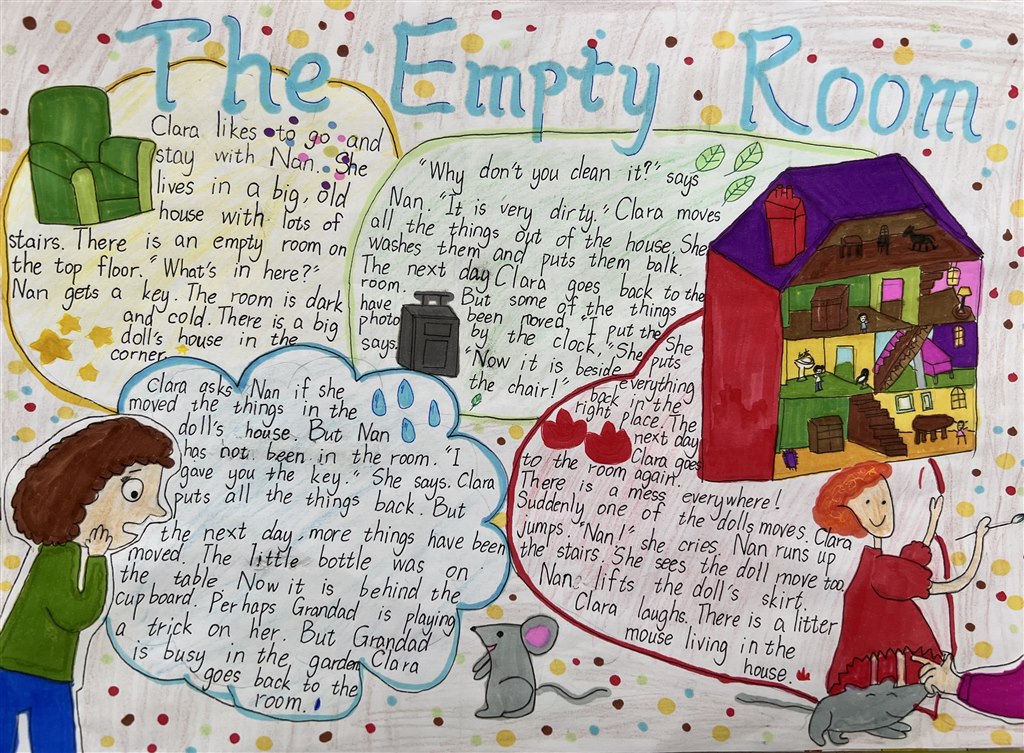 The Empty Room
Clara likes to go and
stay with Nan. She
lives in a big, old
house with lots of
stairs. There is an empty room on
the top floor. "What's in here?"
Nan gets a key. The room is dark
and cold. There is a big
doll's house in the
corner.
"Why don't you clean it?" says
Nan. "It is very dirty." Clara moves
all the things out of the house. She
washes them and puts them balk.
The next day Clara goes back to the
room. But some of the things
have been moved. "I put the
photo by the clock," She
says. "Now it is beside
the chair!" She puts
everything
back in the
right place. The
next day
Clara goes
to the room again.
There is a mess everywhere!
Suddenly one of the dolls moves. Clara
jumps. "Nan!" she cries. Nan runs up
the stairs. She sees the doll move too.
Nan lifts the doll's skirt.
Clara laughs. There is a litter
mouse living in the
house.
Clara asks Nan if she
moved the things in the
doll's house. But Nan
has not been in the room. "I
gave you the key." She says. Clara
puts all the things back. But
the next day, more things have been
moved. The little bottle was on
the table. Now it is behind the
cupboard. Perhaps Grandad is playing
a trick on her. But Grandad
is busy in the garden. Clara
goes back to the
room.